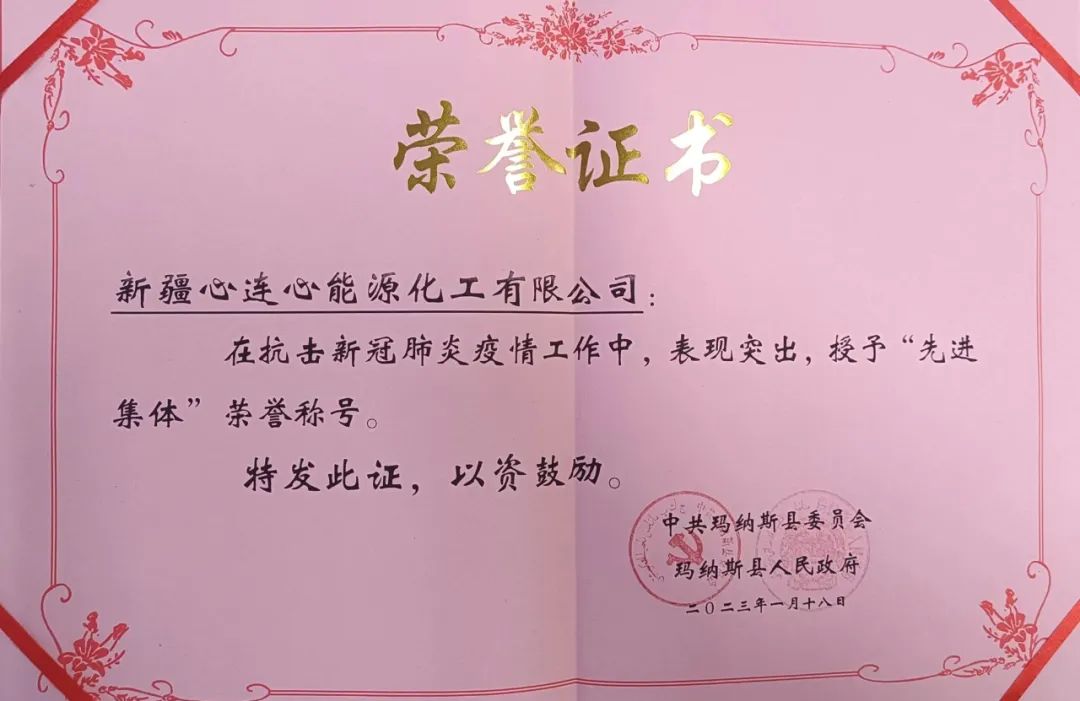 荣誉证书
新疆心连心能源化工有限公司：
在抗击新冠肺炎疫情工作中，表现突出，授予“先进
集体”荣誉称号。
特发此证，以资鼓励。
中共玛纳斯县委员会
玛纳斯县人民政府
二〇二三年一月十八日